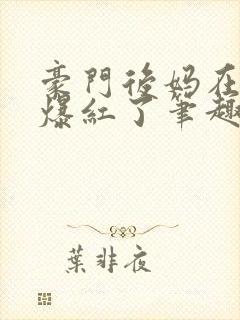 豪門後媽在
爆紅了筆趣
葉非夜